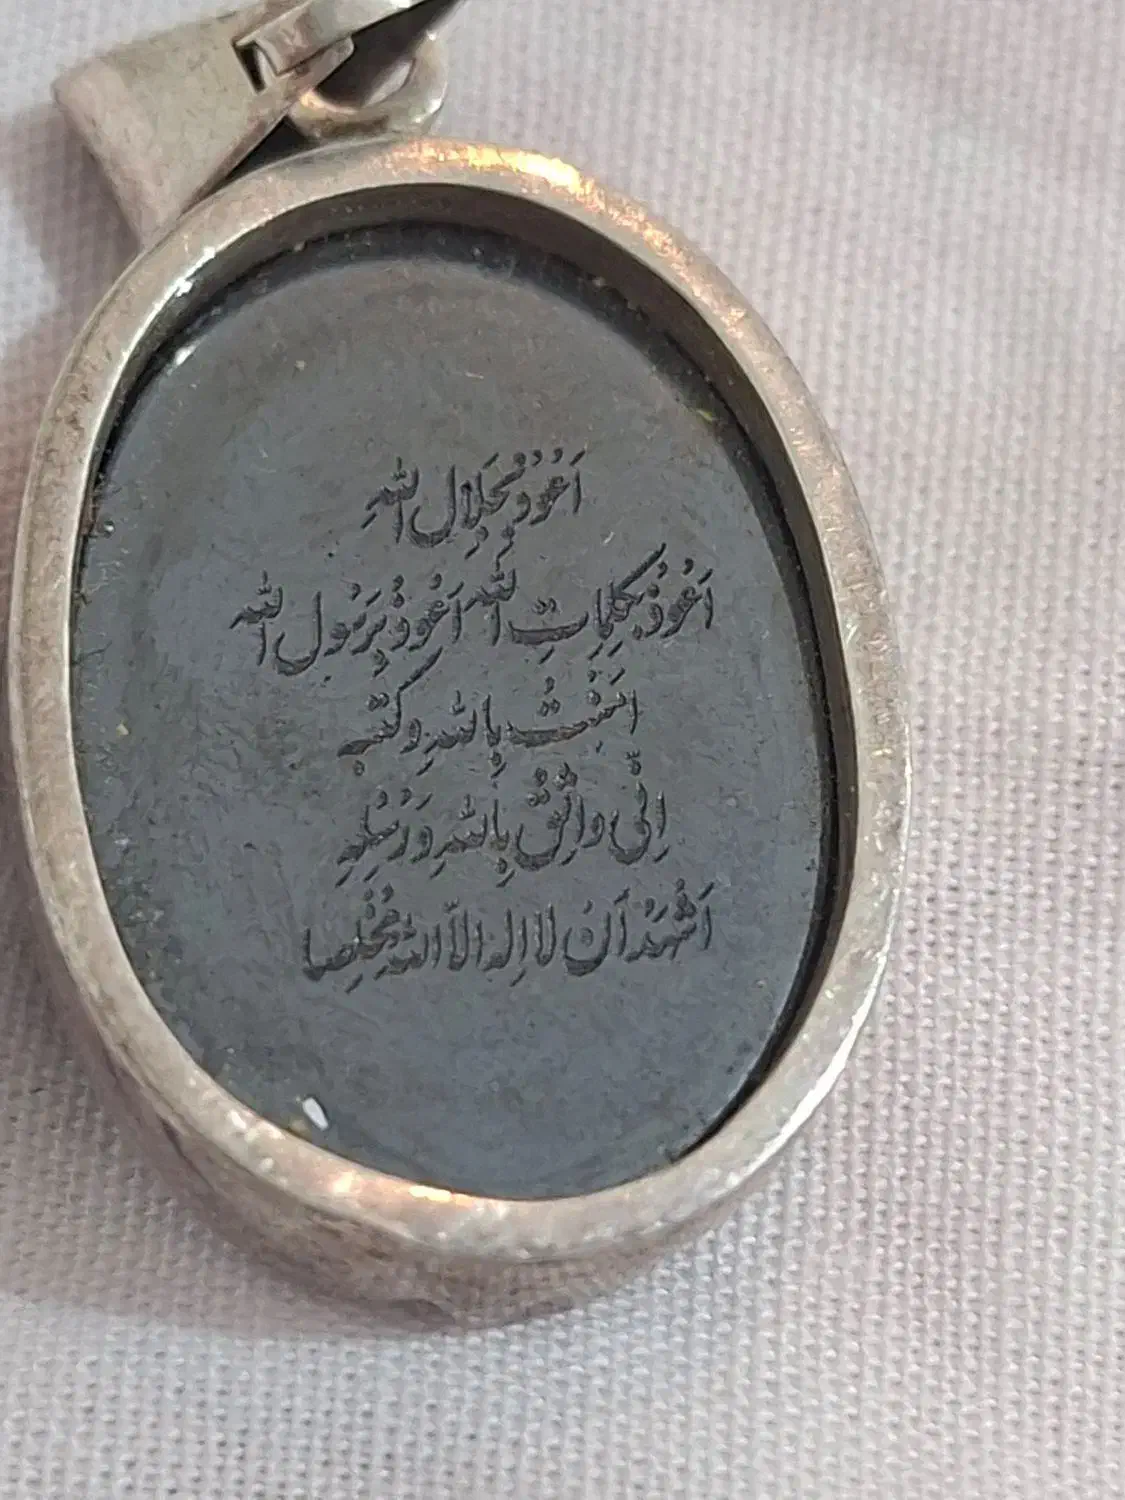 اَعُوذُ بِجَلَالِ اللهِ
اَعُوذُ بِكَلِمَاتِ اللهِ اَعُوذُ بِرَسُولِ اللهِ
امَنْتُ بِاللهِ وَ كُتُبِهِ
اِنّٖى وَاثِقٌ بِاللهِ وَرُسُلِهِ
اَشْهَدُ اَنْ لا اِلهَ الاَّ اللهُ مُخْلِصا